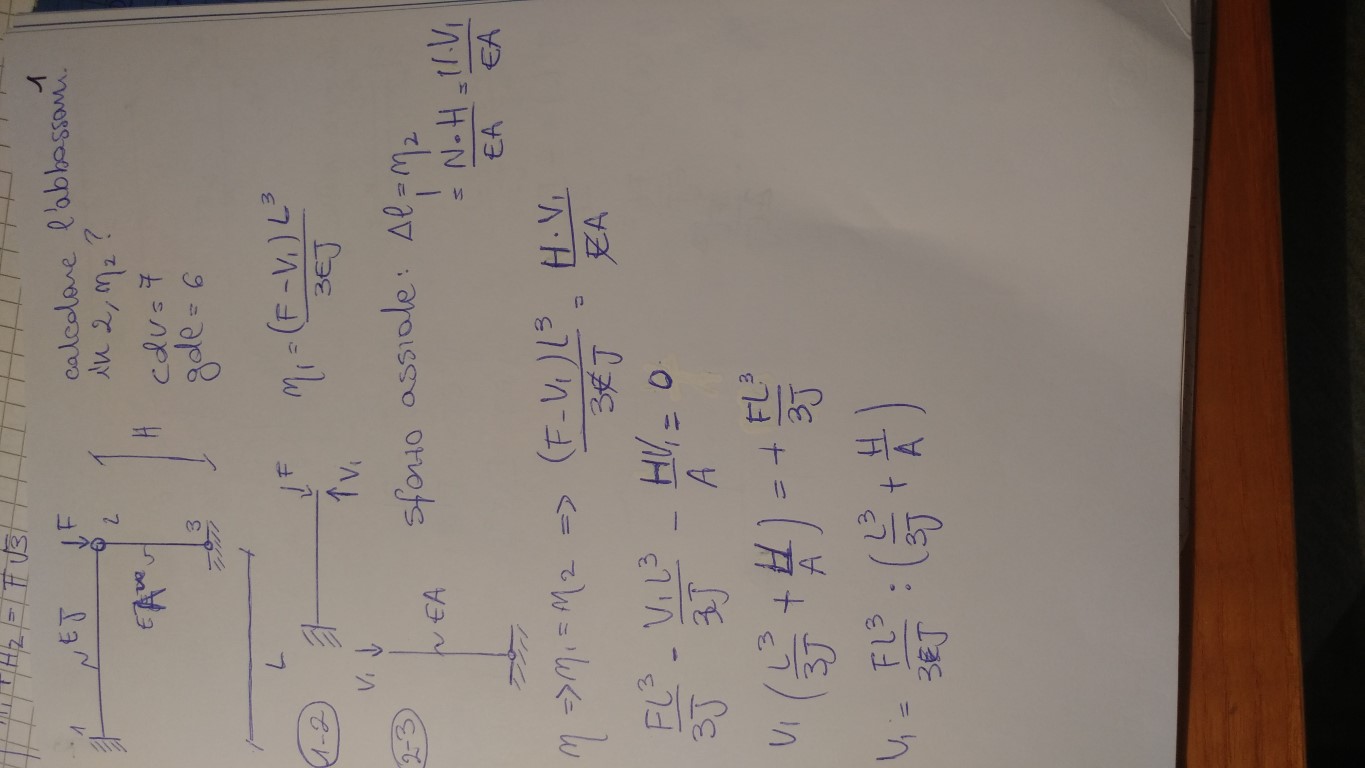 H₂ = F√3
1
1 EJ F
2
EA
H
3
L
calcolare l'abbassam.
in 2, η₂?
cdv = 7
gdl = 6
1-2 F
V₁
η₁ = (F - V₁) L³ / 3EJ
2-3 V₁
EA
sforzo assiale: Δl = η₂
= N·H / EA = H·V₁ / EA
η => η₁ = η₂ => (F - V₁) L³ / 3EJ = H·V₁ / EA
FL³ / 3J - V₁L³ / 3J - HV₁ / A = 0
V₁ (L³ / 3J + H / A) = + FL³ / 3J
V₁ = FL³ / 3EJ : (L³ / 3J + H / A)